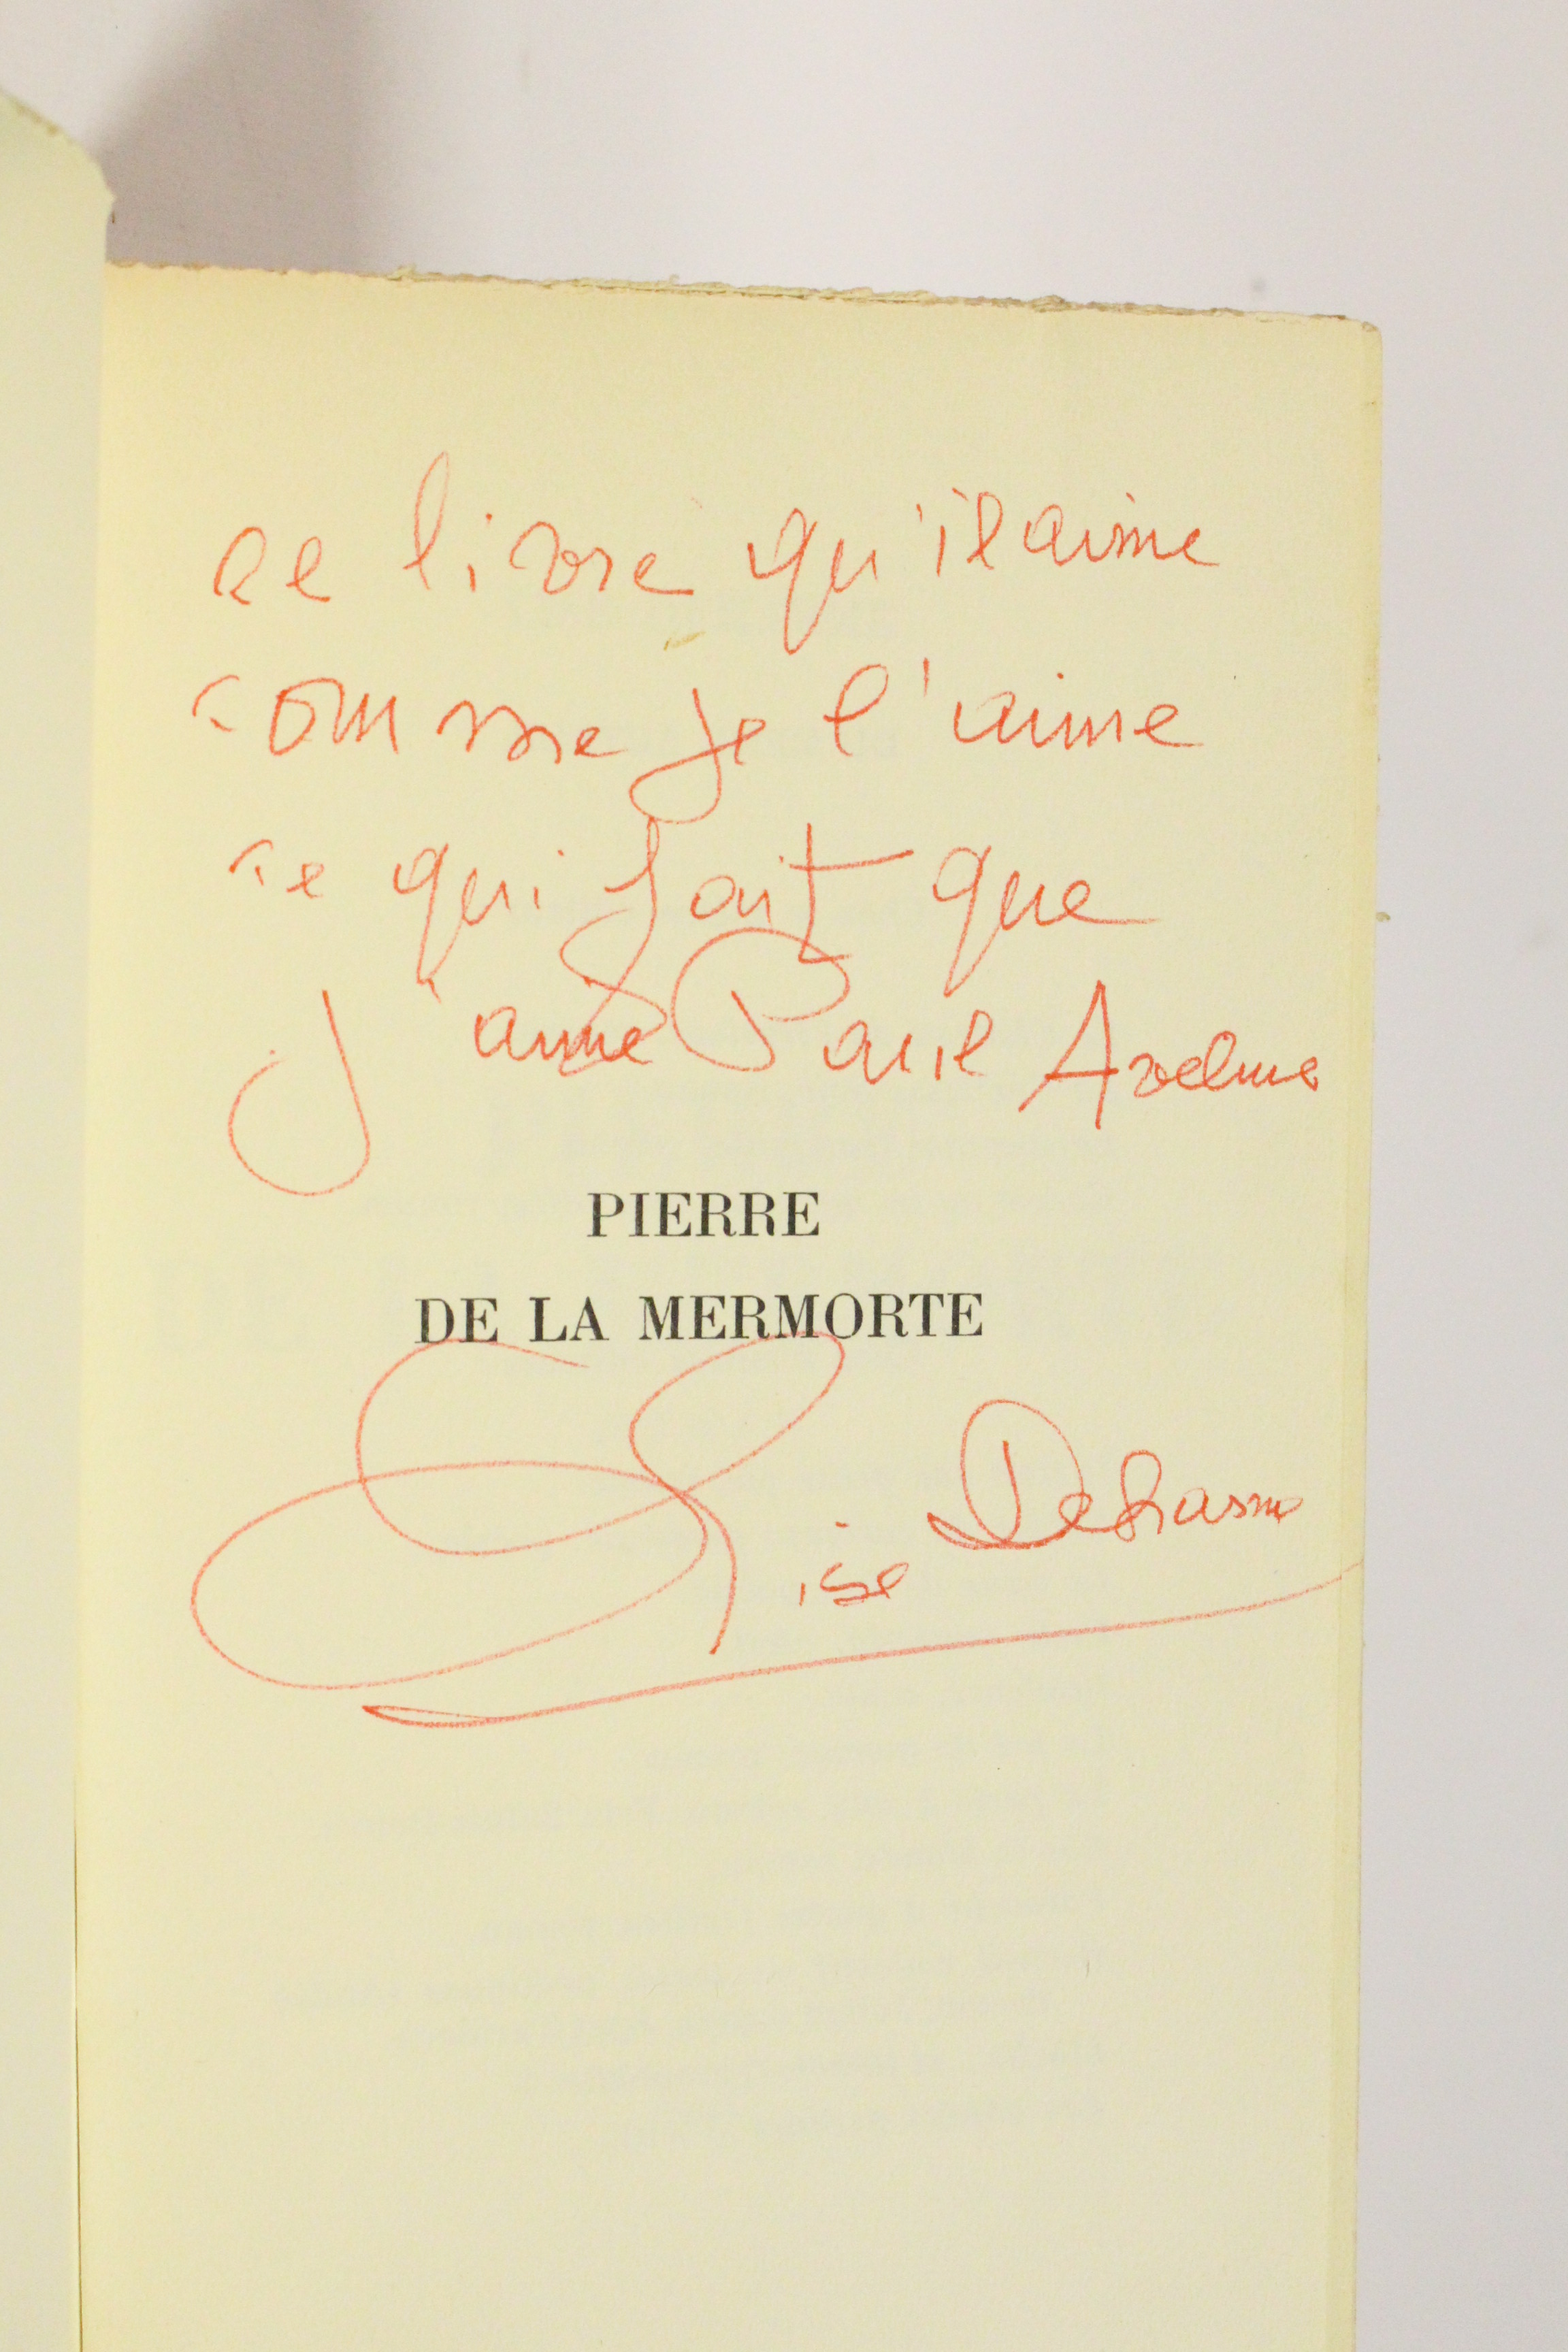 ce livre qu'il aime
comme je l'aime
ce qui fait que
j'aime Paul Avelme
PIERRE
DE LA MERMORTE
Lise Deharme